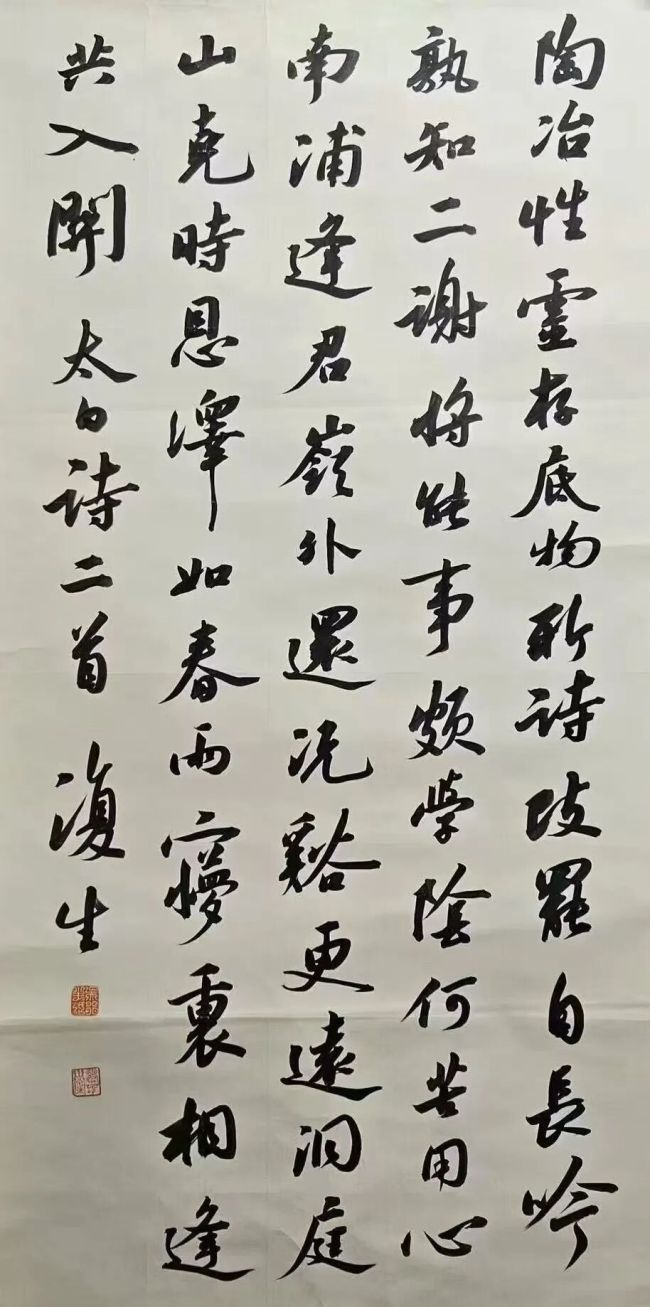 陶冶性靈存底物新詩改罷自長吟
孰知二謝將能事頗學陰何苦用心
南浦逢君嶺外還沅谿更遠洞庭
山堯時恩澤如春雨夢裏相逢
共入關 太白詩二首 復生